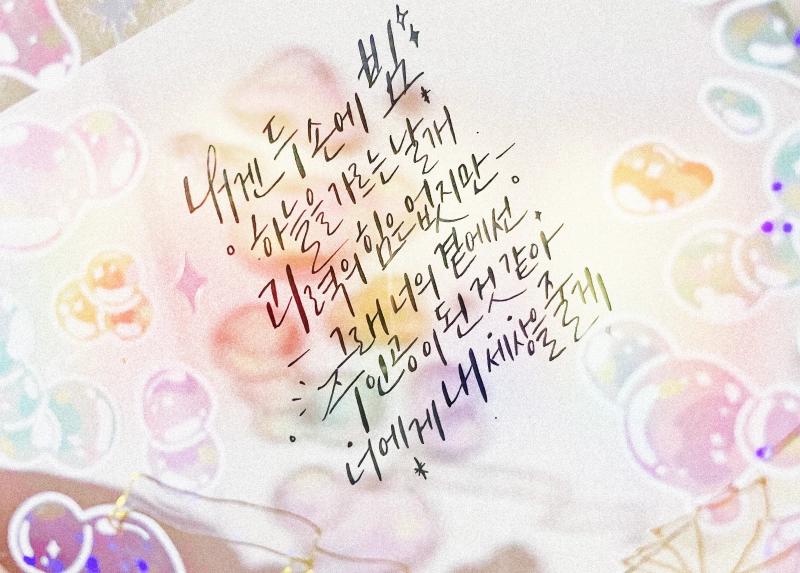 내겐 두 손에 빔
하늘을 가르는 날개
괴력의 힘은 없지만
그래 너의 곁에선
주인공이 된 것 같아
너에게 내 세상을 줄게